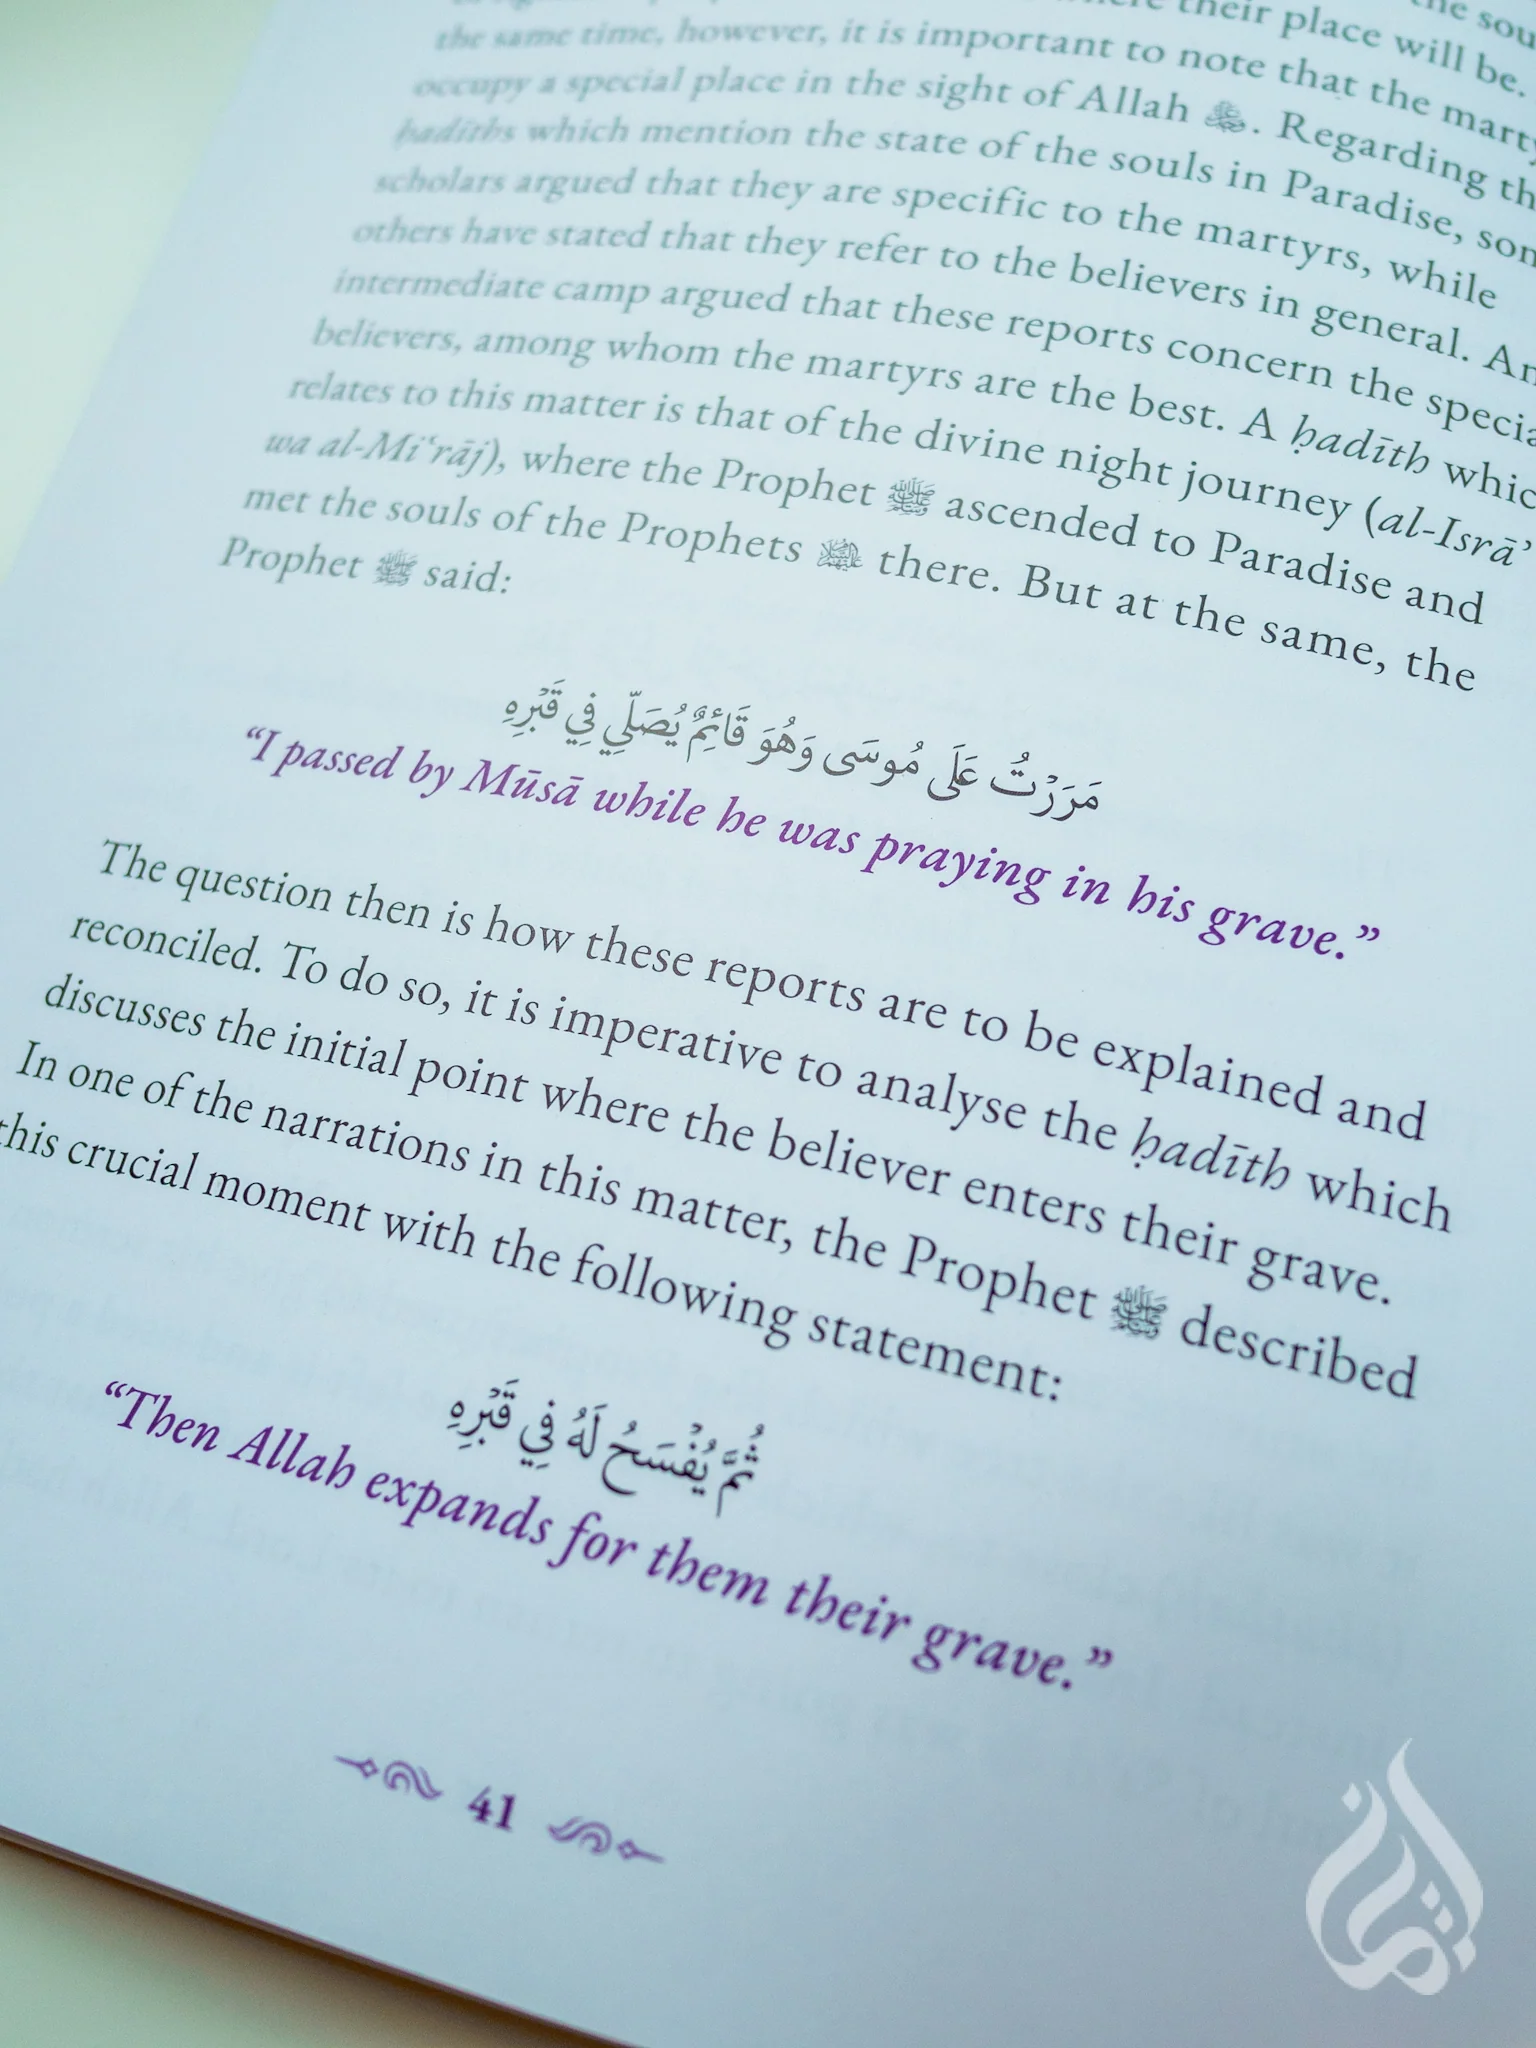 the sou
where their place will be.
the same time, however, it is important to note that the marty
occupy a special place in the sight of Allah ﷻ. Regarding th
ḥadīths which mention the state of the souls in Paradise, som
scholars argued that they are specific to the martyrs, while
others have stated that they refer to the believers in general. An
intermediate camp argued that these reports concern the specia
believers, among whom the martyrs are the best. A ḥadīth whic
relates to this matter is that of the divine night journey (al-Isrā’
wa al-Mi‘rāj), where the Prophet ﷺ ascended to Paradise and
met the souls of the Prophets there. But at the same, the
Prophet ﷺ said:
مَرَرْتُ عَلَى مُوسَى وَهُوَ قَائِمٌ يُصَلِّي فِي قَبْرِهِ
“I passed by Mūsā while he was praying in his grave.”
The question then is how these reports are to be explained and
reconciled. To do so, it is imperative to analyse the ḥadīth which
discusses the initial point where the believer enters their grave.
In one of the narrations in this matter, the Prophet ﷺ described
this crucial moment with the following statement:
ثُمَّ يُفْسَحُ لَهُ فِي قَبْرِهِ
“Then Allah expands for them their grave.”
41